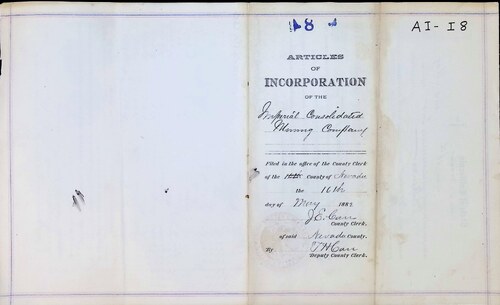 48
AI-18
ARTICLES
OF
INCORPORATION
OF THE
Imperial Consolidated
Mining Company
Filed in the office of the County Clerk
of the County of Nevada
the 16th
day of May 1882
J. E. Carr
County Clerk,
of said Nevada County.
By T H Carr
Deputy County Clerk.